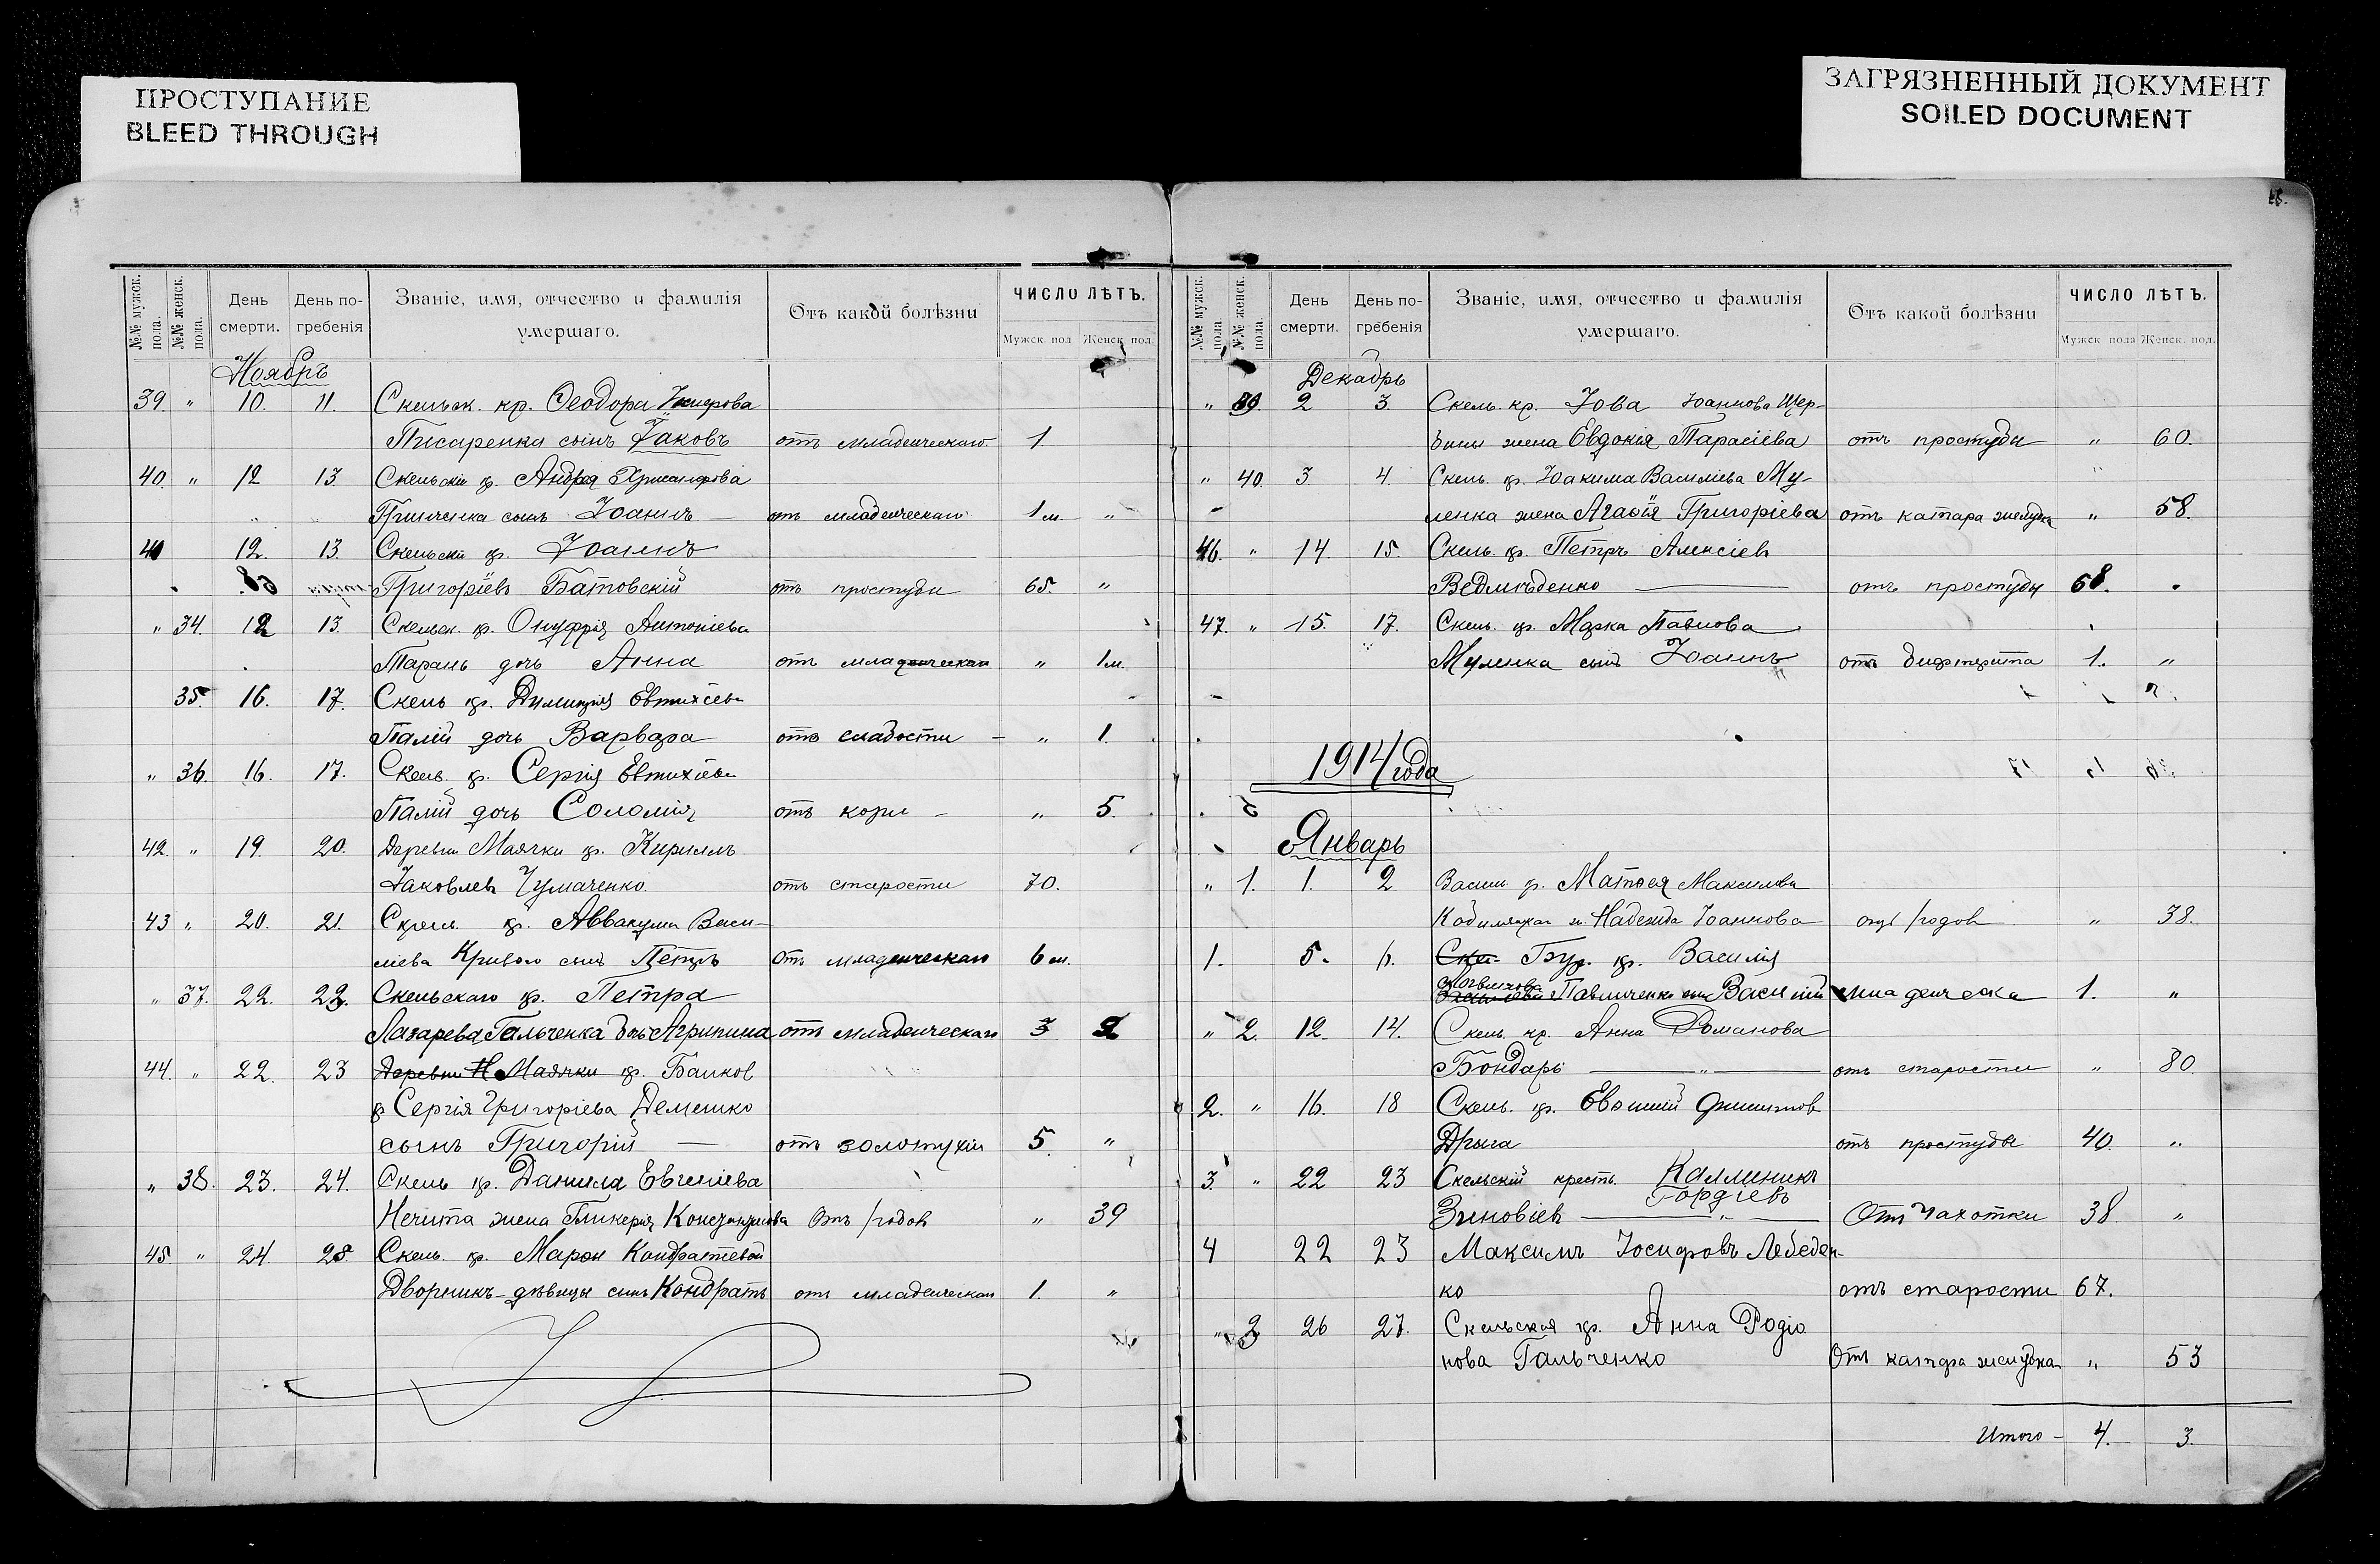 ПРОСТУПАНИЕ
BLEED THROUGH
ЗАГРЯЗНЕННЫЙ ДОКУМЕНТ
SOILED DOCUMENT
№№ мужск. пола. №№ женск. пола. День смерти. День погребенія Званіе, имя, отчество и фамилія умершаго. Отъ какой болѣзни ЧИСЛО ЛѢТЪ. Мужск. пол Женск. пол.
Ноябрь
39 " 10. 11. Скельск. кр. Ѳеодора
Писаренка сынъ Іаковъ отъ младенческаго 1.
40. " 12 13 Скельскій кр. Андрея
Гринченка сынъ Іоаннъ — отъ младенческаго 1 м. "
41 12. 13 Скельскій кр. Іоаннъ
Григоріевъ Батовскій отъ простуды 65. "
" 34. 12 13. Скельск. кр. Онуфрія Антоніева
Тарань дочь Анна отъ младенческаго " 1 м.
35. 16. 17. Скель кр. Димитрія Евтихіева
Палій дочь Варвара отъ слабости — " 1.
" 36. 16. 17. Скель. кр. Сергія Евтихіева
Палій дочь Соломія отъ кори — " 5.
42. " 19. 20. Деревни Маячки кр. Кириллъ
Іаковлевъ Чумаченко. отъ старости 70.
43 " 20. 21. кр. Аввакума Васи-
ліева Кривого сынъ Петръ отъ младенческаго 6 м.
" 37. 22. 23. Скельскаго кр. Петра
Лазарева Гальченка дочь Агрипина отъ младенческаго 2
44. " 22. 23 Деревни Маячки кр.
кр Сергія Григоріева Демешко
сынъ Григорій — отъ золотухи 5. "
" 38. 23. 24. Скель кр. Даніила Евгеніева
Нечита жена Гликерія Константинова Отъ родовъ " 39
45. " 24. 25. Скель. кр. Марѳи Кондратіевой
Дворникъ-дѣвицы сынъ Кондратъ отъ младенческаго 1. "
№№ мужск. пола. №№ женск. пола. День смерти. День погребенія Званіе, имя, отчество и фамилія умершаго. Отъ какой болѣзни ЧИСЛО ЛѢТЪ. Мужск. пола Женск. пол.
Декабрь
" 39. 2 3. Скель. кр. Іова Іоаннова Щер-
бины жена Евдокія Тарасіева отъ простуды " 60.
" 40. 3 4. Скель. кр. Іоакима Василіева Му-
ленка жена Агаѳія Григоріева отъ катара желудка " 58.
46. " 14. 15. Скель. кр. Петръ Алексіевъ
Ведмѣденко — отъ простуды 68.
47. " 15. 17. Скель. кр. Марка Павлова
Муленка сынъ Іоаннъ отъ дифтерита 1. "
1914 года
Январь
" 1. 1. 2 кр. Матѳея Максимова
ж. Надежда Іоаннова родовъ " 38.
1. 5. 6. Ске. Бур. кр. Василія
Павличенко Василій младенческа 1. "
" 2. 12. 14. Скель. кр. Анна Романова
Бондарь — " — отъ старости " 80.
2. " 16. 18 Скель. кр. Евѳимій
Дрыга отъ простуды 40. "
3. " 22 23 Скельскій крестъ. Каллиникъ
Гордіевъ
Зиновіевъ — " — Отъ Чахотки 38. "
4 22 23 Максимъ Іосифовъ Лебеден-
ко отъ старости 67.
" 3 26 27. Скельская кр. Анна Родіо
нова Гальченко Отъ катара желудка " 53
Итого — 4. 3.